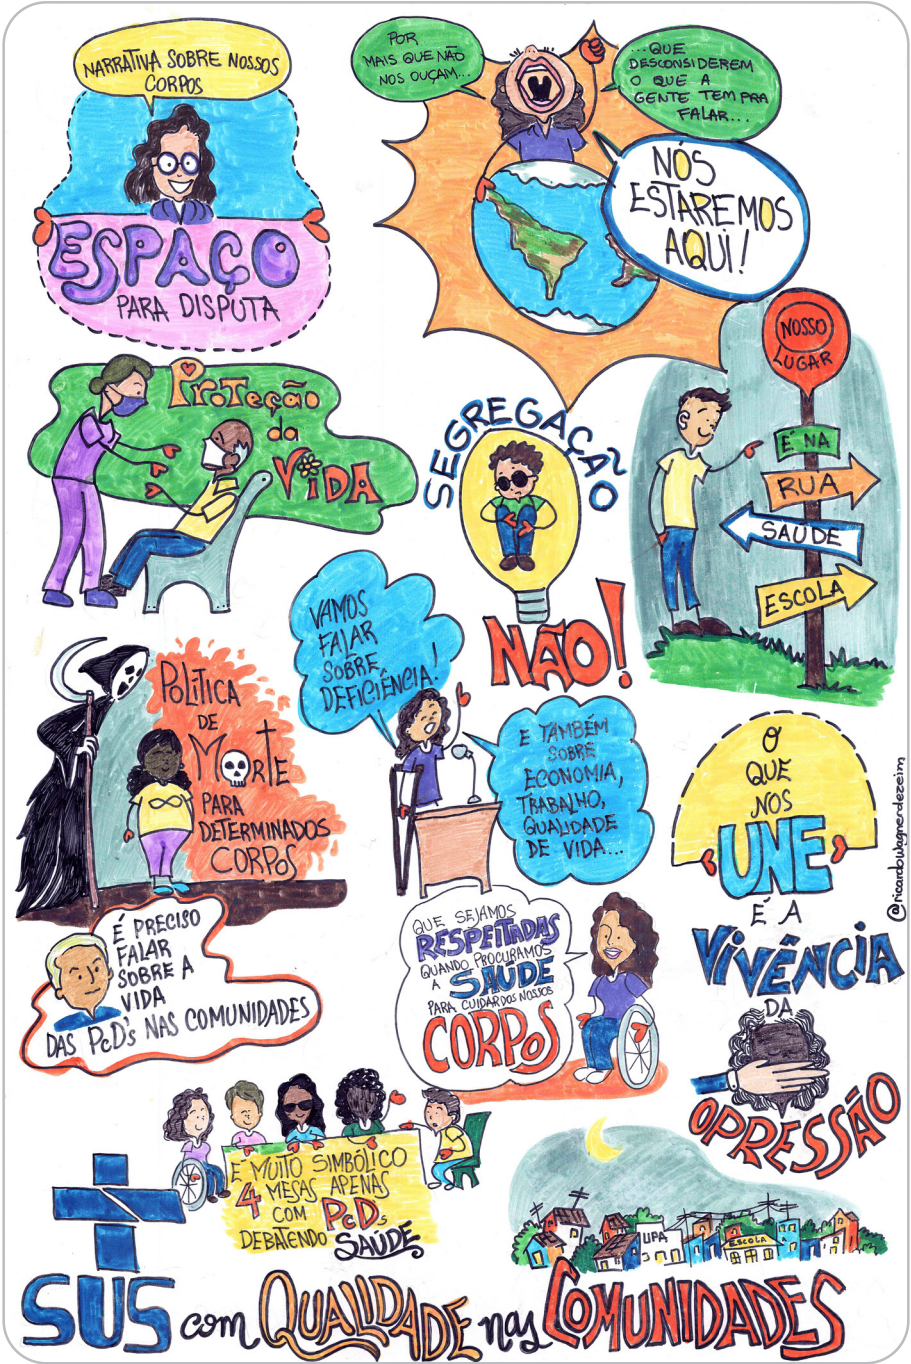 NARRATIVA SOBRE NOSSOS
CORPOS
ESPAÇO
PARA DISPUTA
POR
MAIS QUE NÃO
NOS OUÇAM...
...QUE
DESCONSIDEREM
O QUE A
GENTE TEM PRA
FALAR...
NÓS
ESTAREMOS
AQUI!
NOSSO
LUGAR
É NA
RUA
SAÚDE
ESCOLA
PROTEÇÃO
da
VIDA
SEGREGAÇÃO
NÃO!
VAMOS
FALAR
SOBRE
DEFICIÊNCIA!
E TAMBÉM
SOBRE
ECONOMIA,
TRABALHO,
QUALIDADE
DE VIDA...
POLÍTICA
DE
MORTE
PARA
DETERMINADOS
CORPOS
O
QUE
NOS
UNE
É A
VIVÊNCIA
DA
OPRESSÃO
@ricardowagnerdezeim
É PRECISO
FALAR
SOBRE A
VIDA
DAS PcD's NAS COMUNIDADES
QUE SEJAMOS
RESPEITADAS
QUANDO PROCURAMOS
A SAÚDE
PARA CUIDAR DOS NOSSOS
CORPOS
É MUITO SIMBÓLICO
4 MESAS APENAS
COM PcDs
DEBATENDO SAÚDE
UPA
ESCOLA
SUS com QUALIDADE nas COMUNIDADES